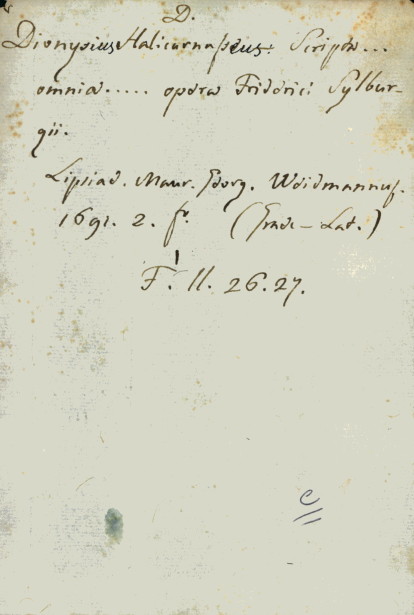 D.
Dionysius Halicarnaßeus. Scripta...
omnia..... opera Friderici Sylbur-
gii.
Lipsiae. Maur. Georg. Weidmannus.
1691. 2. f.
(Graec-Lat.)
F. 11. 26.27.
C